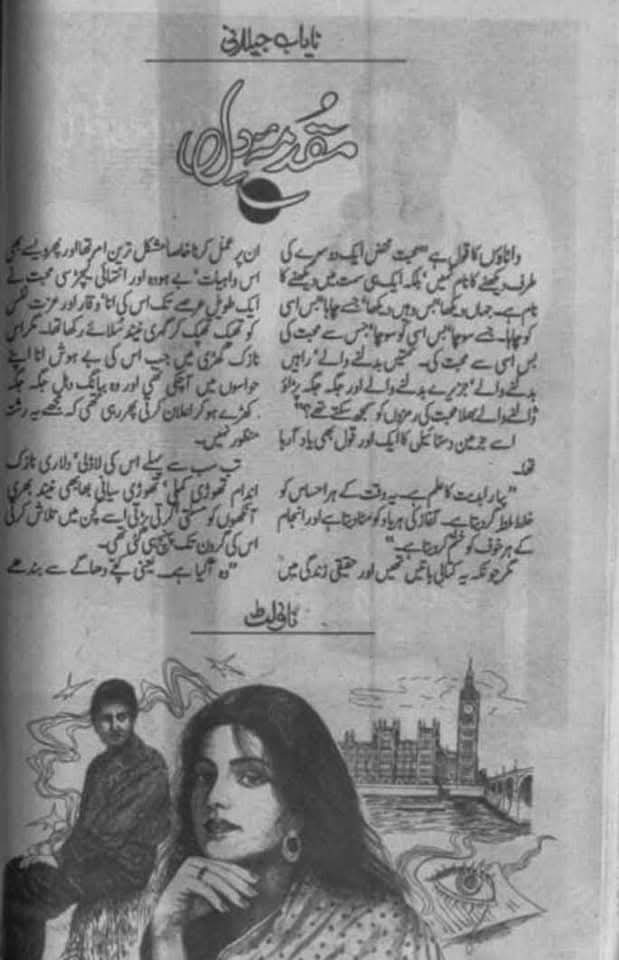 نایاب جیلانی
مقدمہ دل
داناؤں کا قول ہے "محبت محض ایک دوسرے کی
طرف دیکھنے کا نام نہیں' بلکہ ایک ہی سمت میں دیکھنے کا
نام ہے۔ جہاں دیکھا' بس وہیں دیکھا' جسے چاہا' بس اسی
کو چاہا۔ جسے سوچا' بس اسی کو سوچا' جس سے محبت کی
بس اسی سے محبت کی۔ سمتیں بدلنے والے' راہیں
بدلنے والے' جزیرے بدلنے والے اور جگہ جگہ پڑاؤ
ڈالنے والے بھلا محبت کی رمزوں کو سمجھ سکتے تھے؟"
اسے جرمین دستائیل کا ایک اور قول بھی یاد آرہا
تھا۔
"پیار ابدیت کا علم ہے۔ یہ وقت کے ہر احساس کو
خلط ملط کردیتا ہے۔ آغاز کی ہر یاد کو مٹا دیتا ہے اور انجام
کے ہر خوف کو ختم کردیتا ہے۔"
مگر چونکہ یہ کتابی باتیں تھیں اور حقیقی زندگی میں
ان پر عمل کرنا خاصا مشکل ترین امر تھا اور پھر ویسے بھی
اس واہیات' بے ہودہ اور انتہائی لیچڑ سی محبت نے
ایک طویل عرصے تک اس کی انا' وقار اور عزت نفس
کو تھپک تھپک کر گہری نیند سلائے رکھا تھا۔ مگر اس
نازک گھڑی میں جب اس کی بے ہوش انا اپنے
حواسوں میں آچکی تھی اور وہ ببانگ دہل جگہ جگہ
کھڑے ہو کر اعلان کرتی پھر رہی تھی کہ مجھے یہ رشتہ
منظور نہیں۔
تب سب سے پہلے اس کی لاڈلی' دلاری نازک
اندام تھوڑی کملی' تھوڑی سیانی بھابھی نیند بھری
آنکھوں کو مسلتی' گرتی پڑتی اسے کچن میں تلاش کرتی
اس کی گردن تک پہنچ ہی گئی تھی۔
"وہ آگیا ہے۔ یعنی کچے دھاگے سے بندھے
ناولٹ